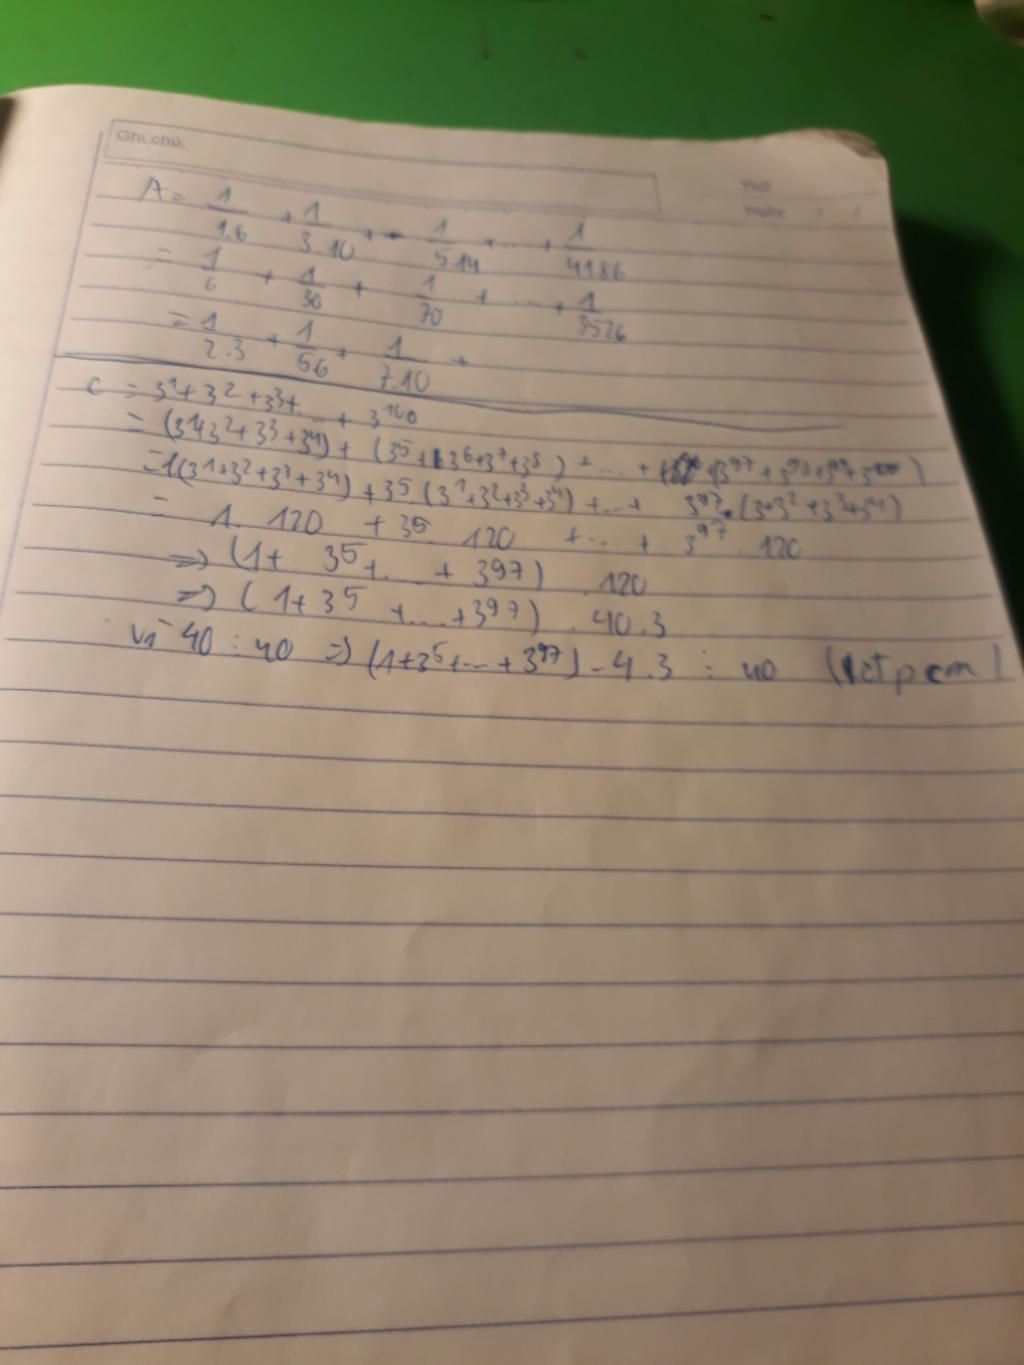 Ghi chú:
Thứ
Ngày
A = 1/1.6 + 1/3.10 + 1/5.14 + ... + 1/41.86
= 1/6 + 1/30 + 1/70 + ... + 1/3526
= 1/2.3 + 1/56 + 1/7.10 +
C = 3^1 + 3^2 + 3^3 + ... + 3^100
= (3^1+3^2+3^3+3^4) + (3^5+3^6+3^7+3^8) + ... + (3^97+3^98+3^99+3^100)
= 1(3^1+3^2+3^3+3^4) + 3^5(3^1+3^2+3^3+3^4) + ... + 3^97.(3+3^2+3^3+3^4)
= 1. 120 + 3^5 120 + ... + 3^97 . 120
=> (1 + 3^5 + ... + 3^97) . 120
=> (1 + 3^5 + ... + 3^97) . 40.3
Vì 40 ⋮ 40 => (1+3^5+...+3^97) - 4.3 ⋮ 40 (đpcm)